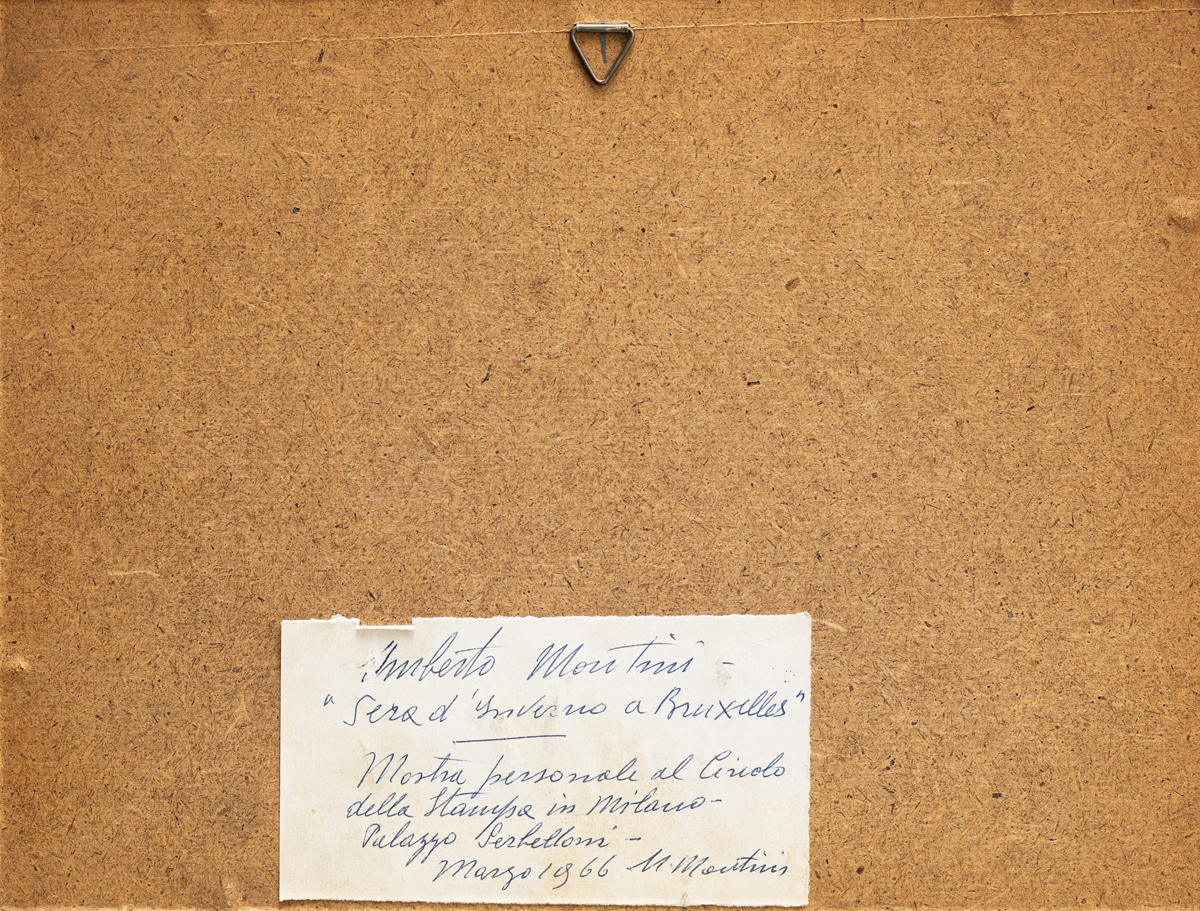 Umberto Montini -
"Sera d'Inverno a Bruxelles"
Mostra personale al Circolo
della Stampa in Milano -
Palazzo Serbelloni -
Marzo 1966 U. Montini